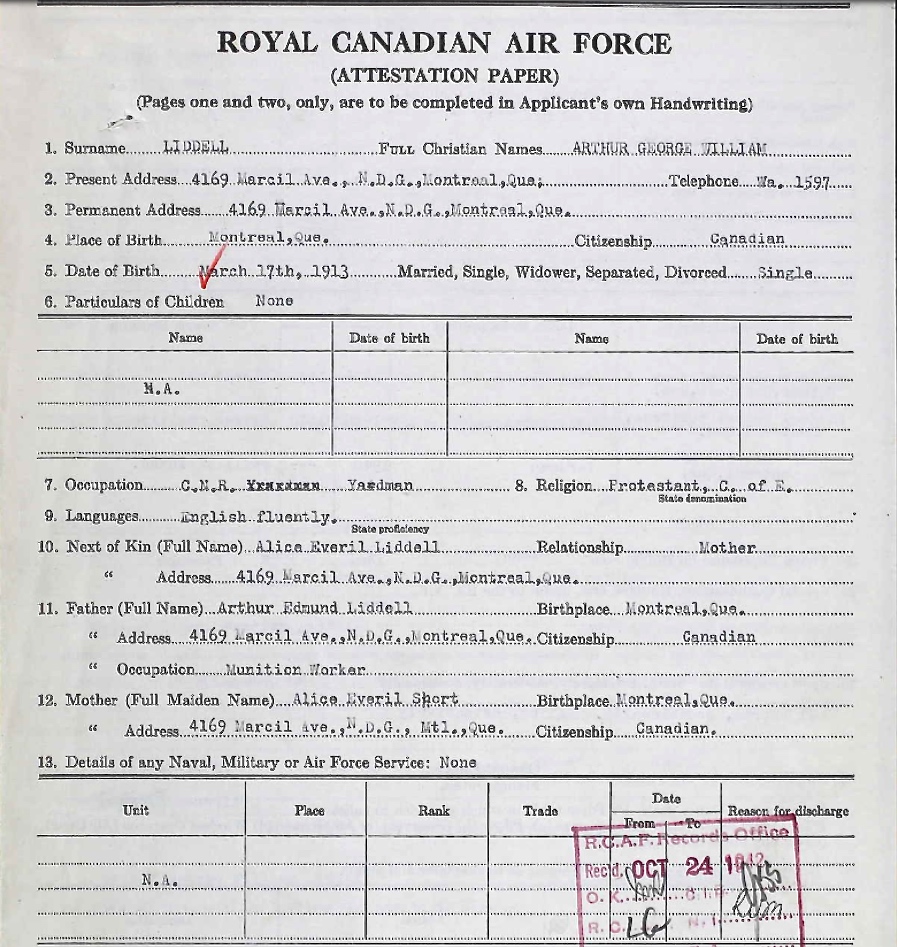 ROYAL CANADIAN AIR FORCE
(ATTESTATION PAPER)
(Pages one and two, only, are to be completed in Applicant's own Handwriting)
1. Surname LIDDELL FULL Christian Names ARTHUR GEORGE WILLIAM
2. Present Address 4169 Marcil Ave., N.D.G.,Montreal,Que; Telephone Wa. 1597
3. Permanent Address 4169 Marcil Ave.,N.D.G.,Montreal,Que.
4. Place of Birth Montreal,Que. Citizenship Canadian
5. Date of Birth March 17th, 1913 Married, Single, Widower, Separated, Divorced Single
6. Particulars of Children None
Name Date of birth Name Date of birth
N.A.
7. Occupation C.N.R. Yardman 8. Religion Protestant, C. of E.
State denomination
9. Languages English fluently.
State proficiency
10. Next of Kin (Full Name) Alice Everil Liddell Relationship Mother
" Address 4169 Marcil Ave.,N.D.G.,Montreal,Que.
11. Father (Full Name) Arthur Edmund Liddell Birthplace Montreal,Que.
" Address 4169 Marcil Ave.,N.D.G.,Montreal,Que. Citizenship Canadian
" Occupation Munition Worker
12. Mother (Full Maiden Name) Alice Everil Short Birthplace Montreal,Que.
" Address 4169 Marcil Ave.,N.D.G., Mtl.,Que. Citizenship Canadian.
13. Details of any Naval, Military or Air Force Service: None
Unit Place Rank Trade Date Reason for discharge
From To
R.C.A.F. Records Office
Rec'd. OCT 24 1942
N.A.
O.K.